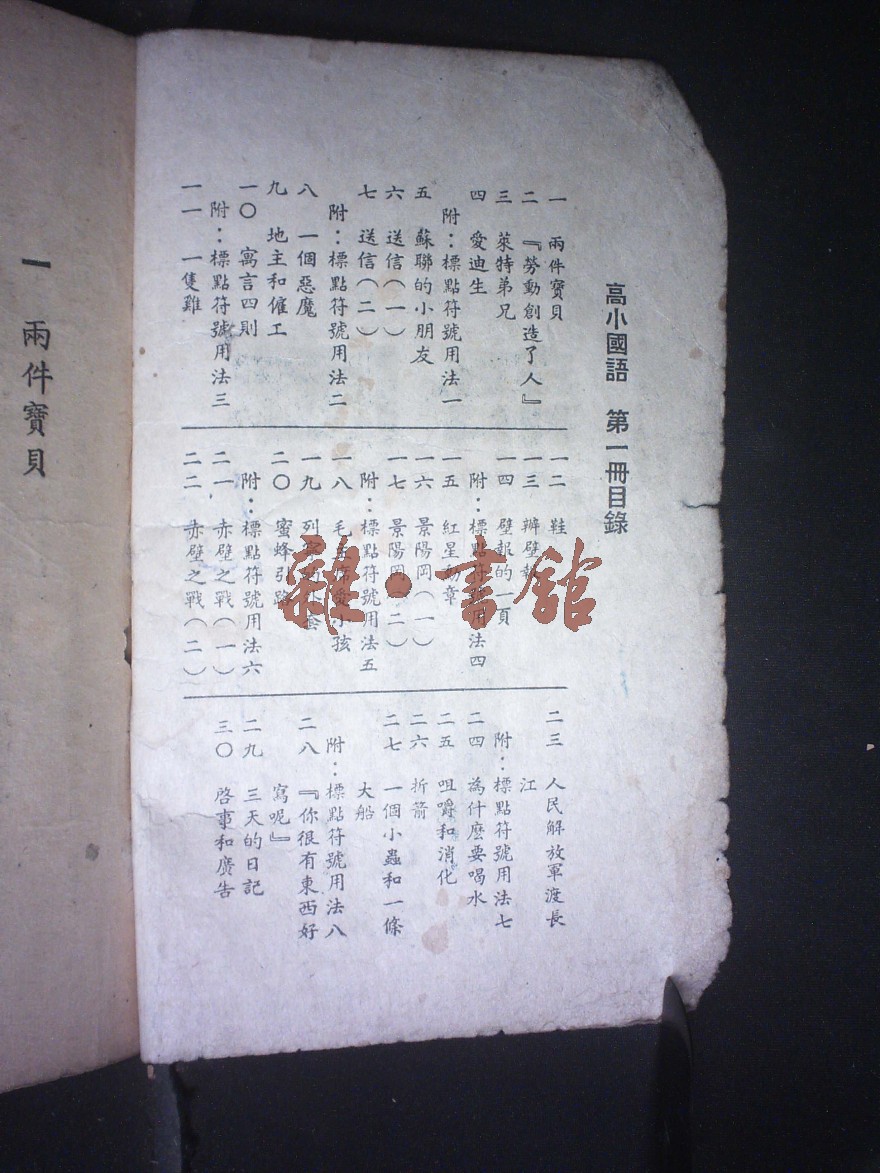 高小國語　第一冊目錄
一　兩件寶貝
二　『勞動創造了人』
三　萊特弟兄
四　愛迪生
附：標點符號用法一
五　蘇聯的小朋友
六　送信（一）
七　送信（二）
附：標點符號用法二
八　一個惡魔
九　地主和僱工
一〇　寓言四則
附：標點符號用法三
一一　一隻雞
一二　鞋
一三　辦壁報
一四　壁報的一頁
附：標點符號用法四
一五　紅星勳章
一六　景陽岡（一）
一七　景陽岡（二）
附：標點符號用法五
一八　毛主席愛小孩
一九　列寧的外套
二〇　蜜蜂引路
附：標點符號用法六
二一　赤壁之戰（一）
二二　赤壁之戰（二）
二三　人民解放軍渡長
江
附：標點符號用法七
二四　為什麼要喝水
二五　咀嚼和消化
二六　折箭
二七　一個小蟲和一條
大船
附：標點符號用法八
二八　『你很有東西好
寫呢』
二九　三天的日記
三〇　啓事和廣告
一　兩件寶貝
雜·書館